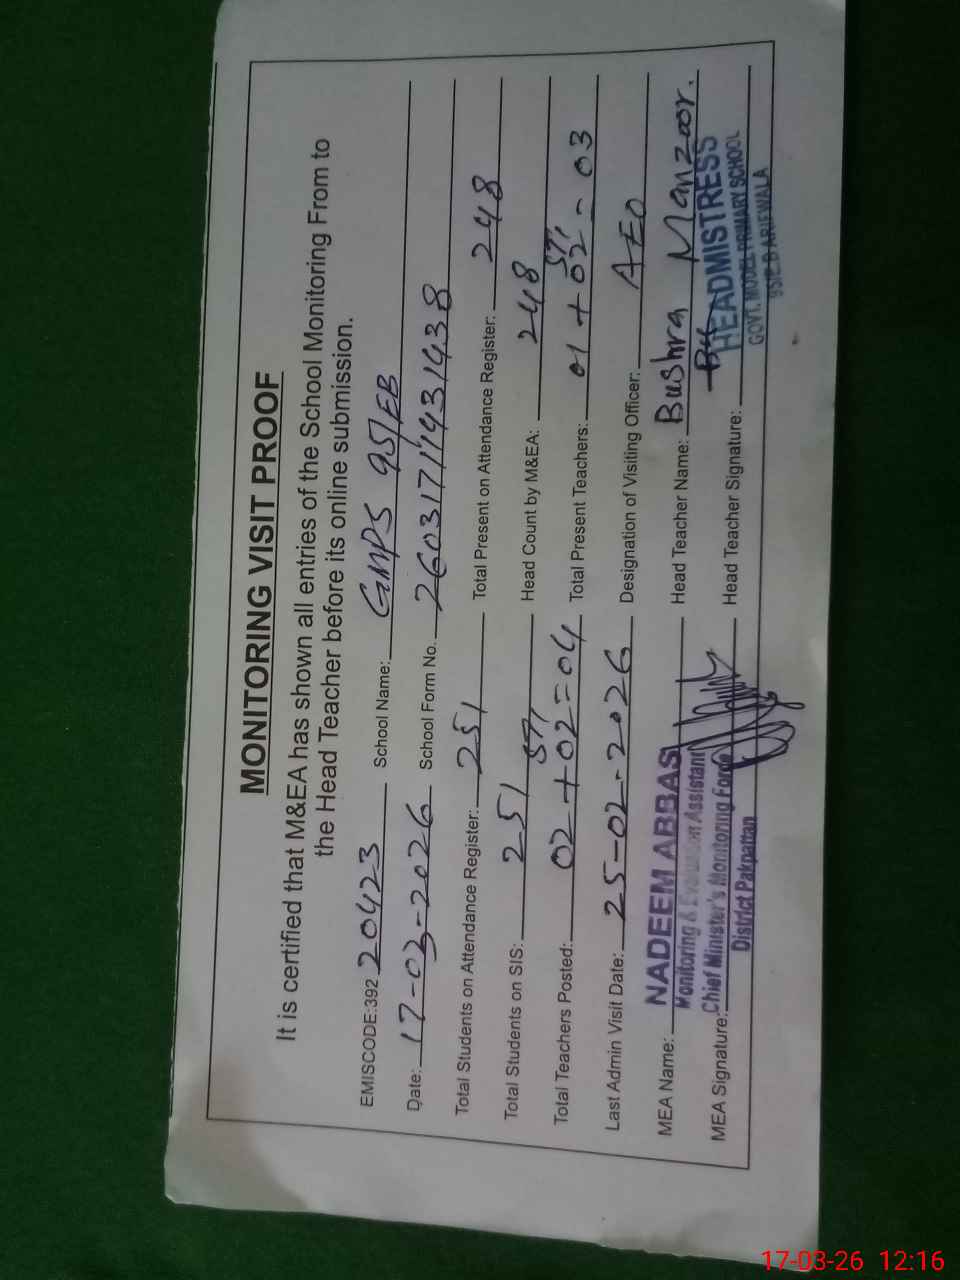 MONITORING VISIT PROOF
It is certified that M&EA has shown all entries of the School Monitoring From to
the Head Teacher before its online submission.
EMISCODE:392 20423 School Name: GMPS 95/EB
Date: 17-03-2026 School Form No. 26031711431438
Total Students on Attendance Register: 251 Total Present on Attendance Register: 248
Total Students on SIS: 251 Head Count by M&EA: 248
Total Teachers Posted: 02 + 02 STI = 04 Total Present Teachers: 01 + 02 STI = 03
Last Admin Visit Date: 25-02-2026 Designation of Visiting Officer: AEO
MEA Name: NADEEM ABBAS Head Teacher Name: Bushra Manzoor.
Monitoring & Evaluation Assistant
MEA Signature: Chief Minister's Monitoring Force Head Teacher Signature:
District Pakpattan
HEADMISTRESS
GOVT. MODEL PRIMARY SCHOOL
95/E.B ARIFWALA
17-03-26 12:16